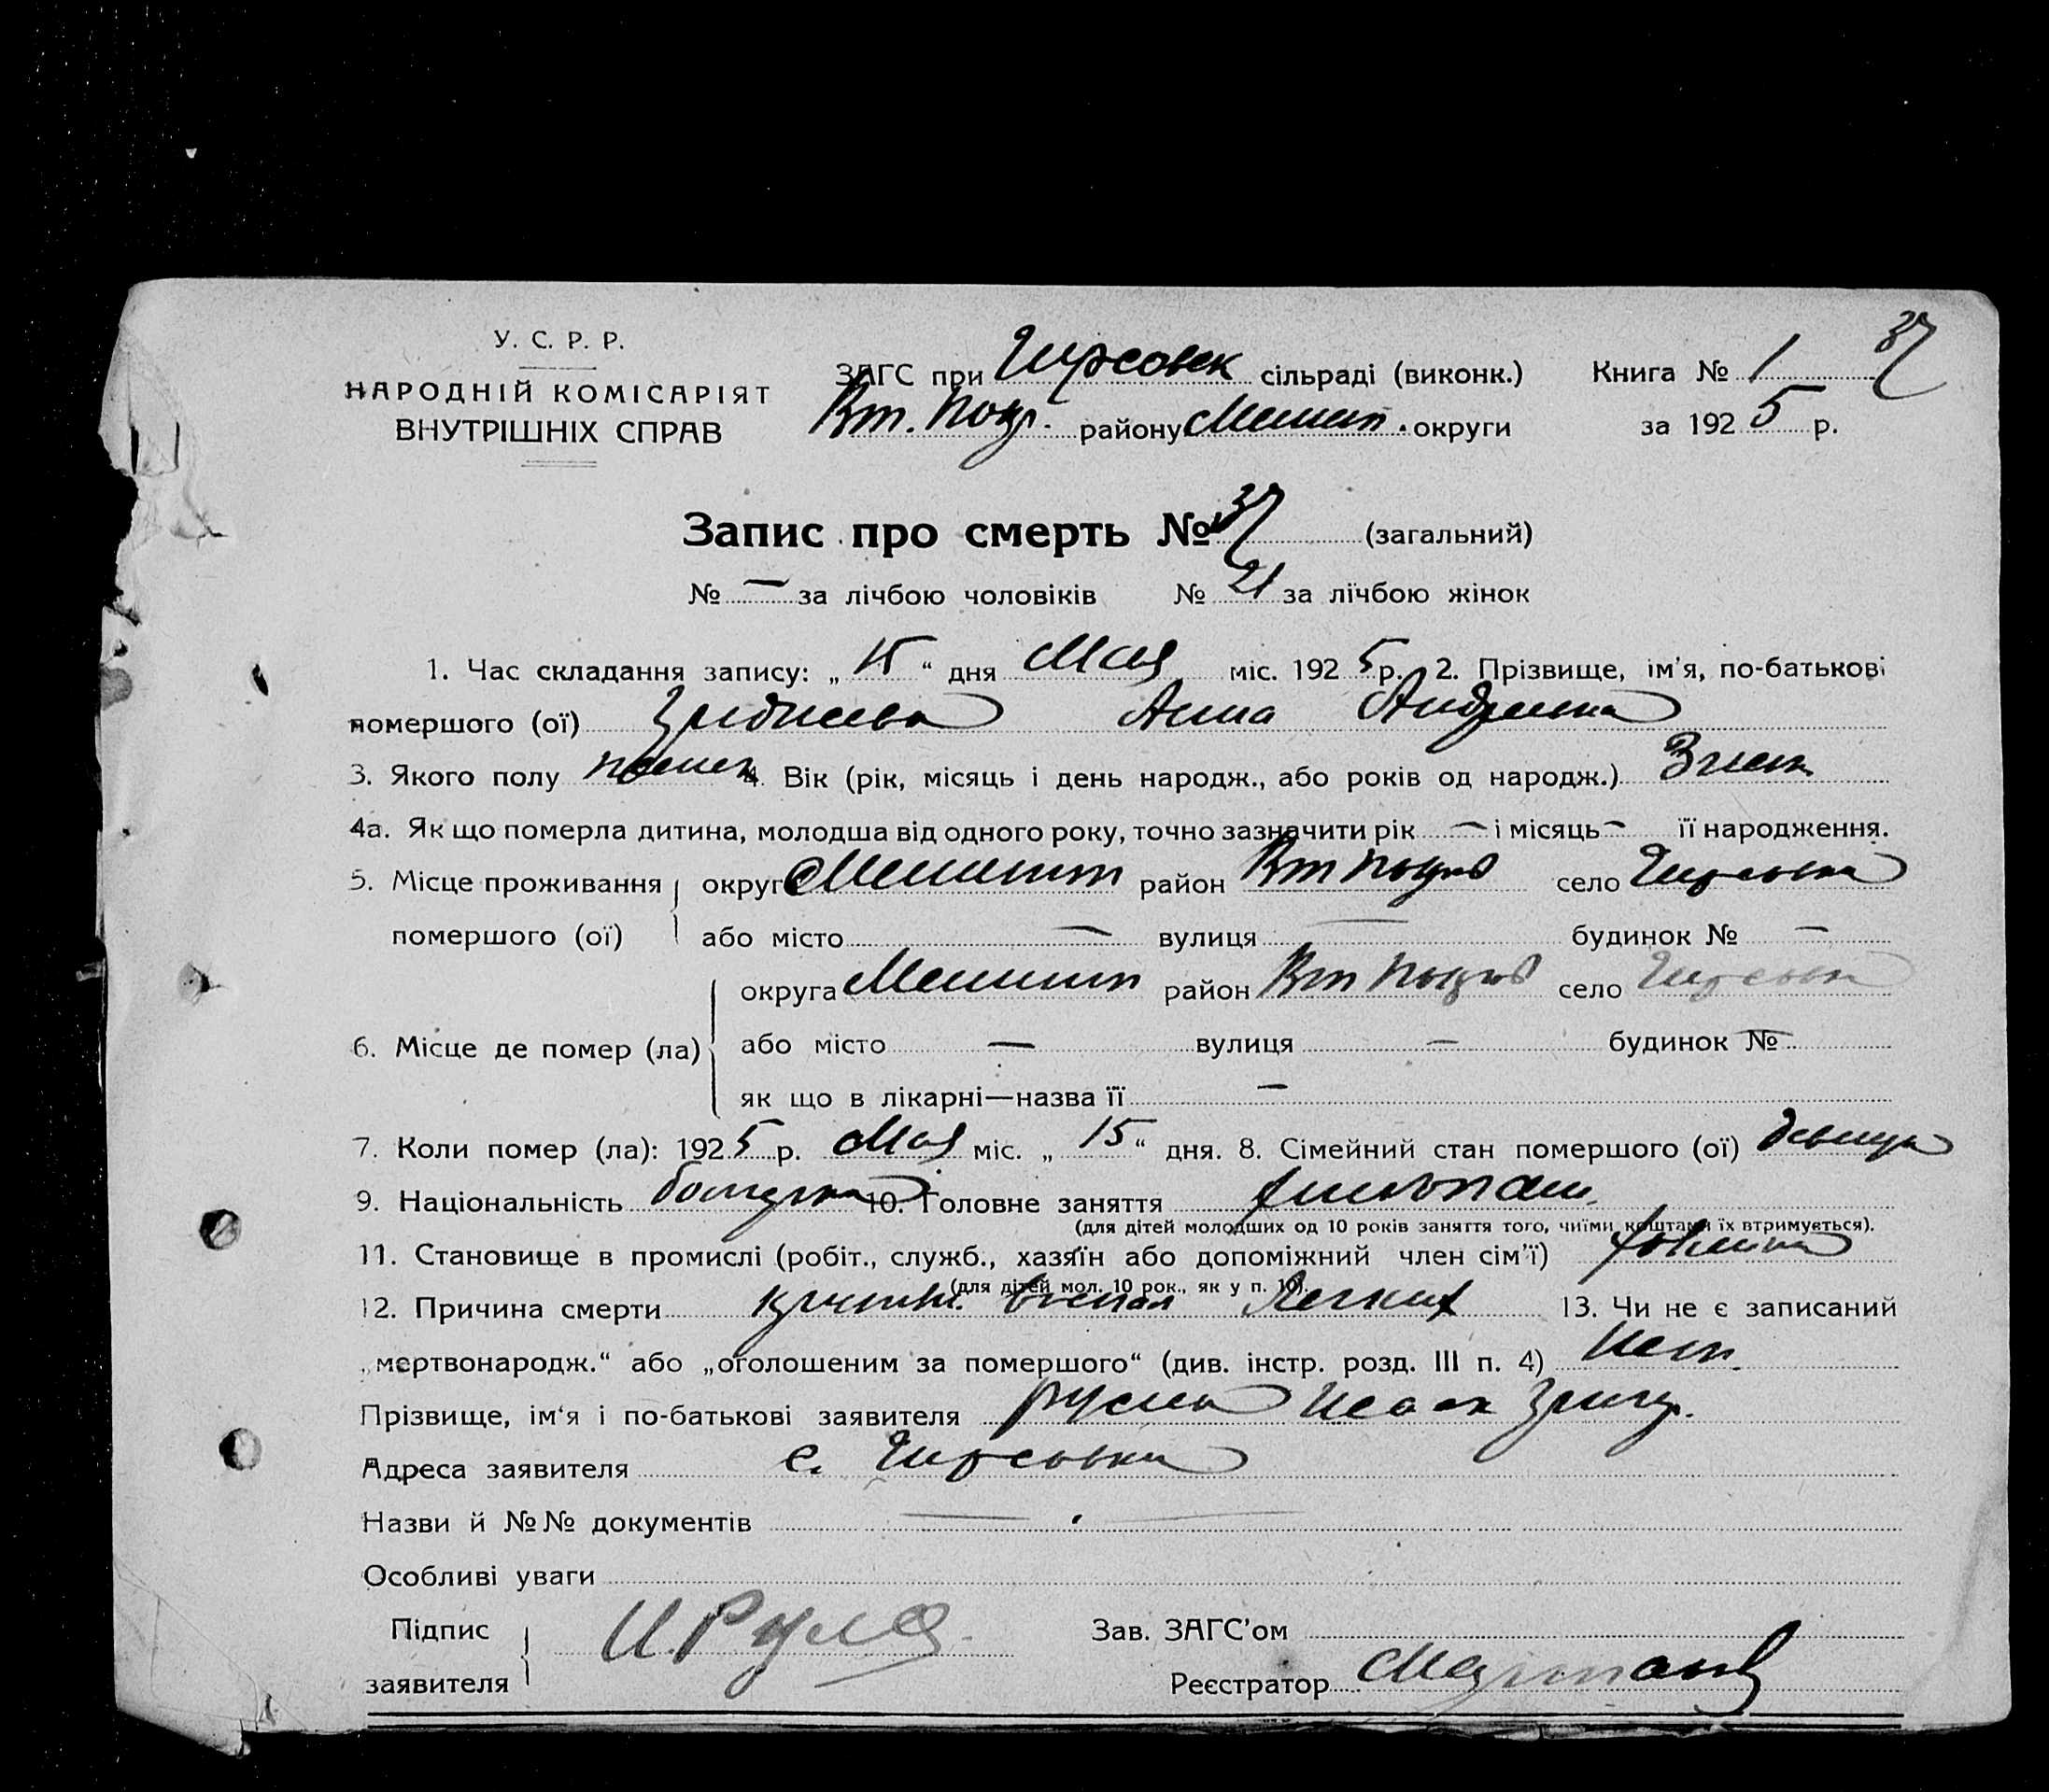 У. С. Р. Р.
НАРОДНІЙ КОМІСАРІЯТ
ВНУТРІШНІХ СПРАВ
ЗАГС при Гирсовск сільраді (виконк.) Книга № 1 37
району Мелит. округи за 1925 р.
Запис про смерть № 37 (загальний)
№ — за лічбою чоловіків № 21 за лічбою жінок
1. Час складання запису: „ 15 “ дня Мая міс. 1925 р. 2. Прізвище, ім'я, по-батькові
помершого (ої) Анна Андреевна
3. Якого полу 4. Вік (рік, місяць і день народж., або років од народж.)
4а. Як що померла дитина, молодша від одного року, точно зазначити рік — і місяць — її народження.
5. Місце проживання округ Мелитоп район село Гирсовка
помершого (ої) або місто — вулиця — будинок № —
округа Мелитоп район село Гирсовка
6. Місце де помер (ла) або місто — вулиця — будинок № —
як що в лікарні—назва її —
7. Коли помер (ла): 1925 р. Мая міс. „ 15 “ дня. 8. Сімейний стан помершого (ої) девица
9. Національність болгарка 10. Головне заняття хлебопаш.
(для дітей молодших од 10 років заняття того, чиїми коштами їх втримується).
11. Становище в промислі (робіт., служб., хазяїн або допоміжний член сім'ї)
(для дітей мол. 10 рок., як у п. 10).
12. Причина смерти воспал Легких 13. Чи не є записаний
„мертвонародж.“ або „оголошеним за помершого“ (див. інстр. розд. III п. 4) Нет.
Прізвище, ім‘я і по-батькові заявителя
Адреса заявителя с. Гирсовка
Назви й №№ документів —
Особливі уваги
Підпис
заявителя
Зав. ЗАГС'ом
Реєстратор